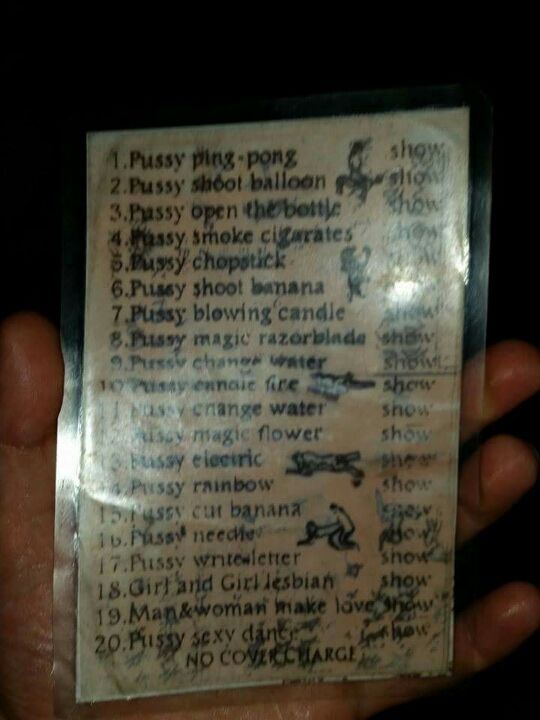 1. Pussy ping-pong show
2. Pussy shoot balloon show
3. Pussy open the bottle show
4. Pussy smoke cigarates show
5. Pussy chopstick show
6. Pussy shoot banana
7. Pussy blowing candle show
8. Pussy magic razorblade show
9. Pussy change water show
10. Pussy candle fire show
11. Pussy change water show
12. Pussy magic flower show
13. Pussy electric show
14. Pussy rainbow show
15. Pussy cut banana show
16. Pussy needle show
17. Pussy write letter show
18. Girl and Girl lesbian show
19. Man & woman make love show
20. Pussy sexy dance show
NO COVER CHARGE